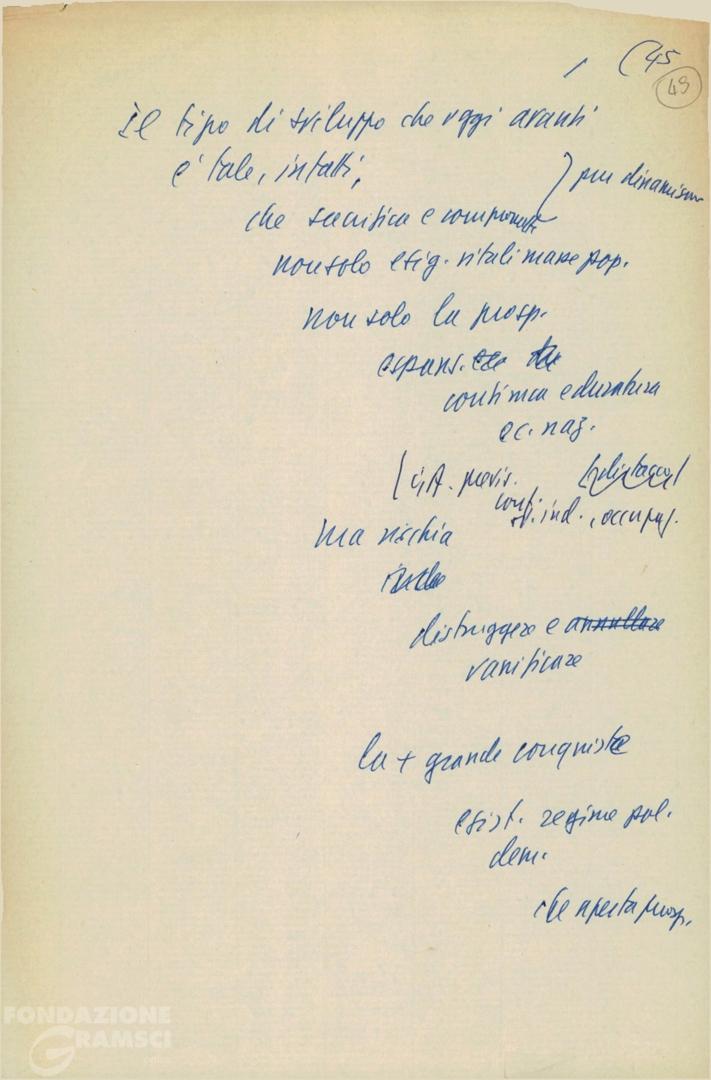 (45
49
Il tipo di sviluppo che oggi avanti
e' tale, infatti,
pur dinamismo
che sacrifica e compromette
non solo esig. vitali masse pop.
non solo la prosp.
espans.
continua e duratura
ec. naz.
distacco
conf.
ind., occupaz.
ma rischia
distruggere e annullare
vanificare
la + grande conquista
esist. regime pol.
dem.
che aperta prosp.
FONDAZIONE
GRAMSCI